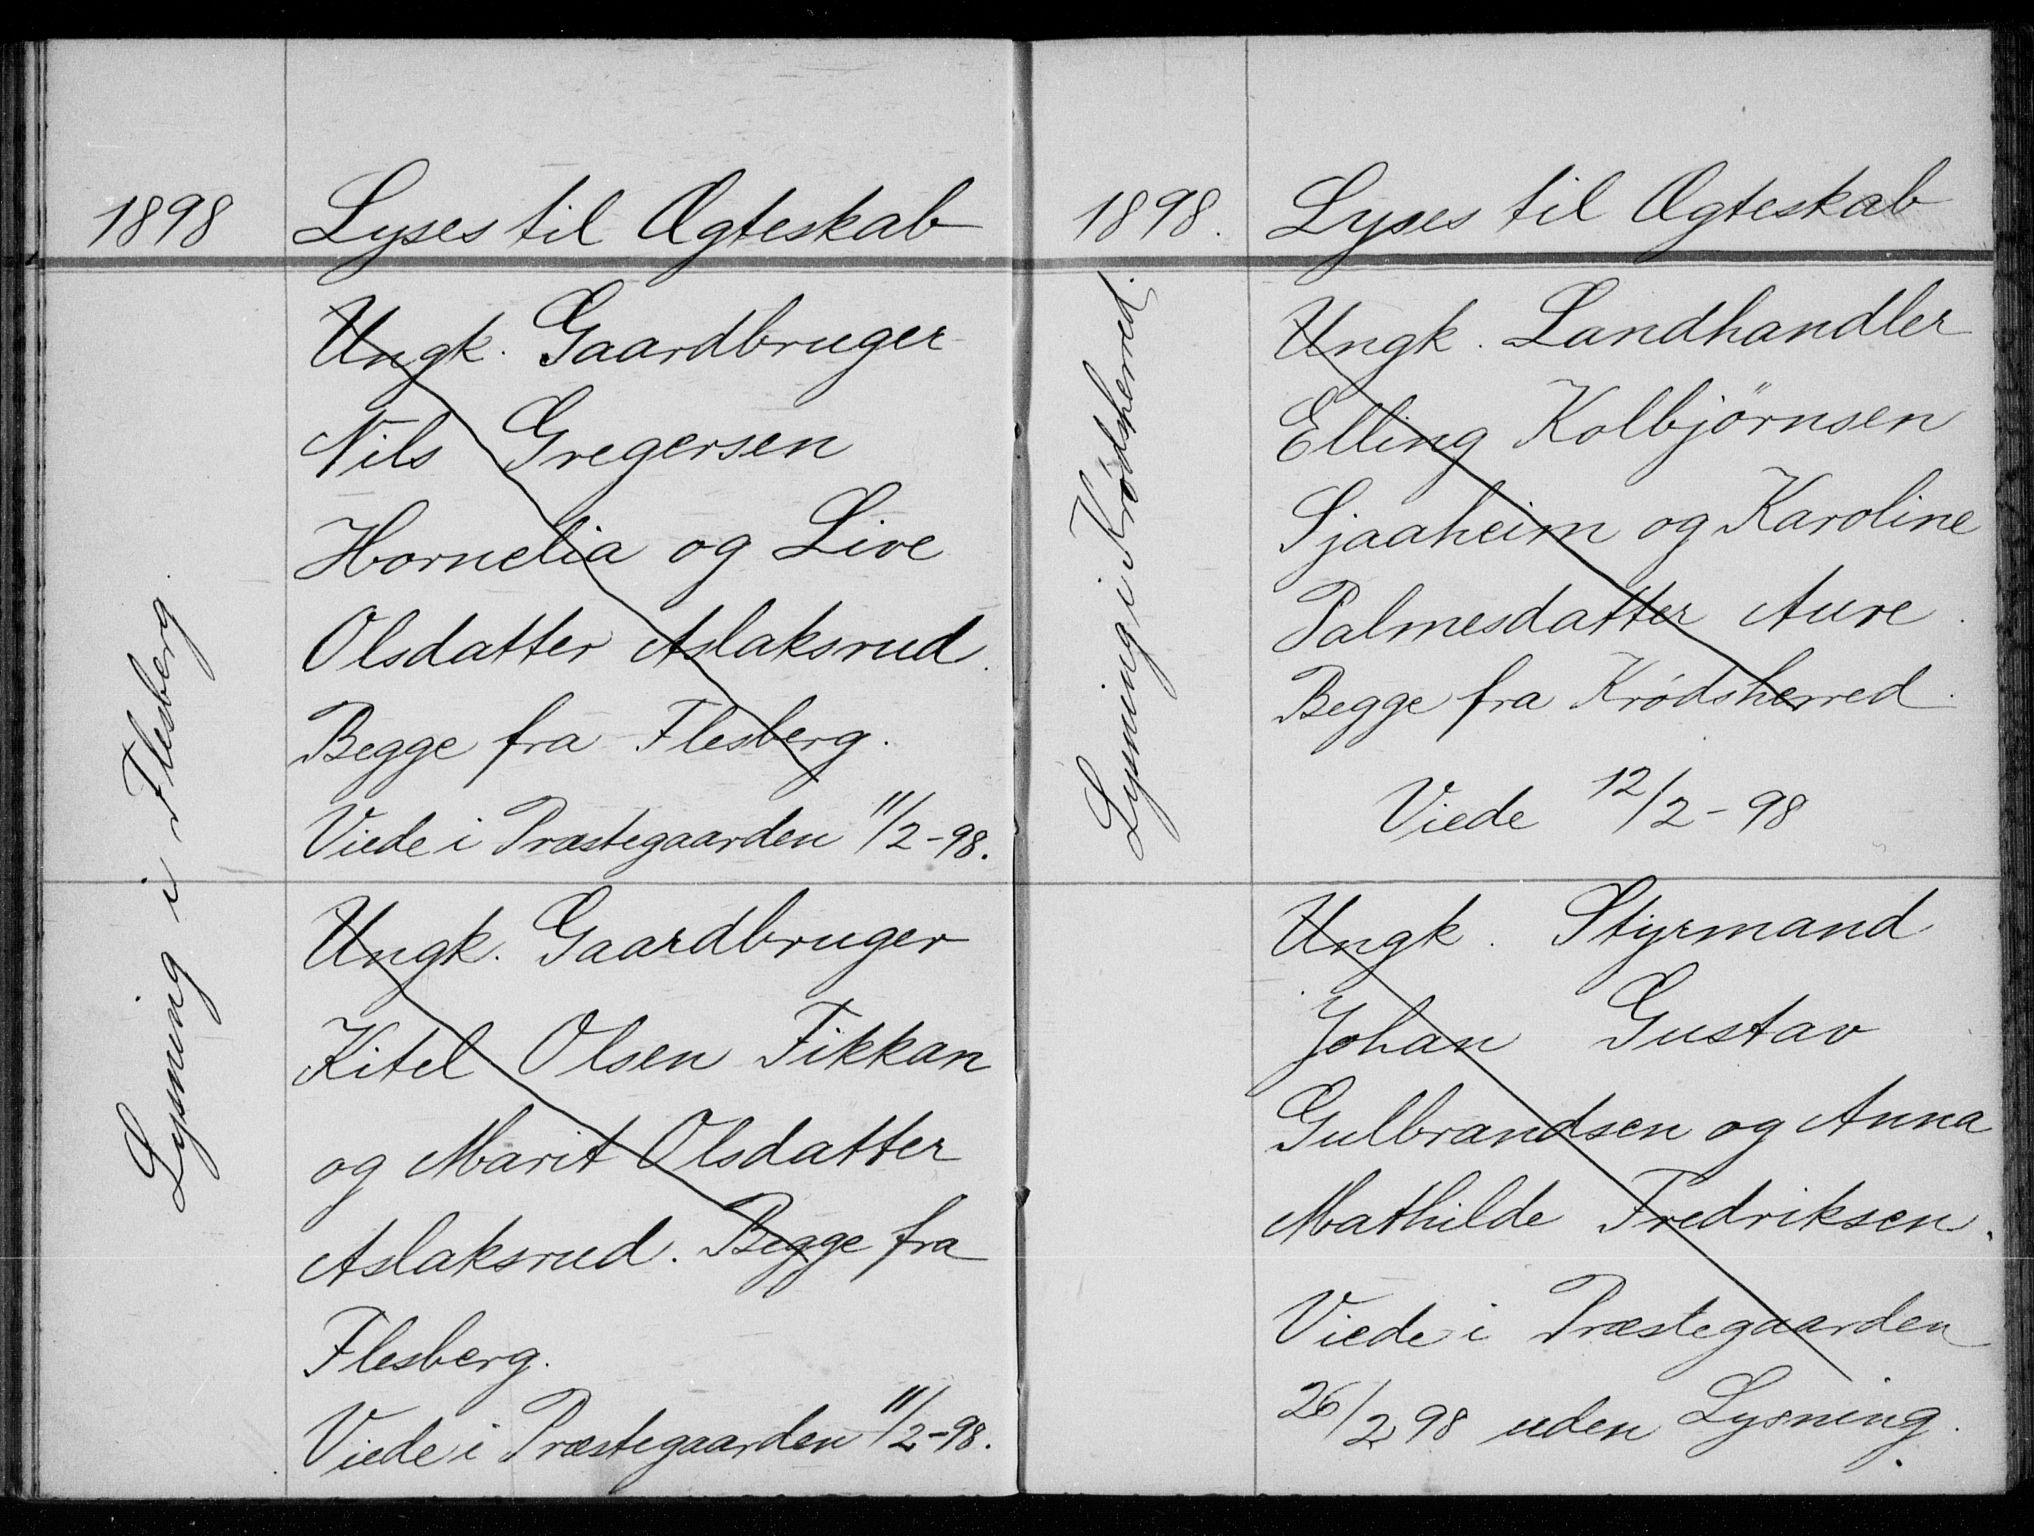 1898
Lyses til Ægteskab
Lysning i Flesberg.
Ungk. Gaardbruger
Nils Gregersen
Hornelia og Live
Olsdatter Aslaksrud.
Begge fra Flesberg.
Viede i Præstegaarden 11/2-98.
Ungk. Gaardbruger
Kitel Olsen Fikkan
og Marit Olsdatter
Aslaksrud. Begge fra
Flesberg.
Viede i Præstegaarden 11/2-98.
1898.
Lyses til Ægteskab
Lysning i Krødsherred.
Ungk. Landhandler
Elling Kolbjörnsen
Sjaaheim og Karoline
Palmesdatter Aure.
Begge fra Krødsherred.
Viede 12/2-98
Ungk. Styrmand
Johan Gustav
Gulbrandsen og Anna
Mathilde Fredriksen.
Viede i Præstegaarden
26/2 98 uden Lysning.